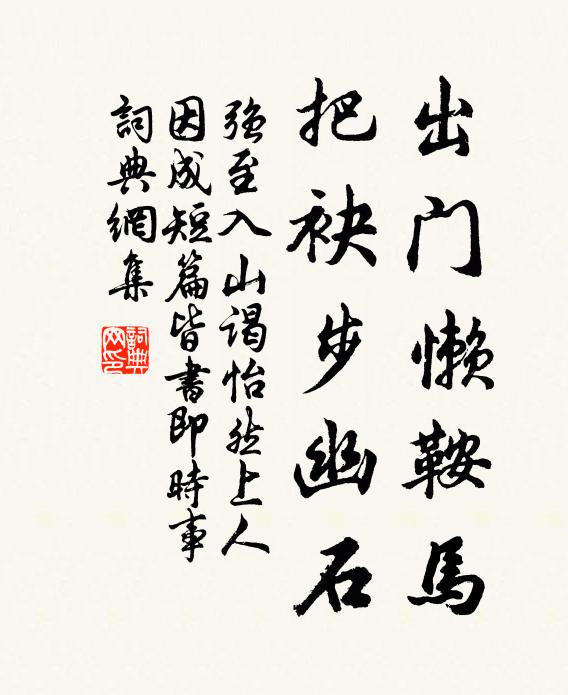 出门懒鞍馬
把袂步幽石
強至入山謁怡然上人
因成短篇皆書即時事
詞典網集
詞典网印